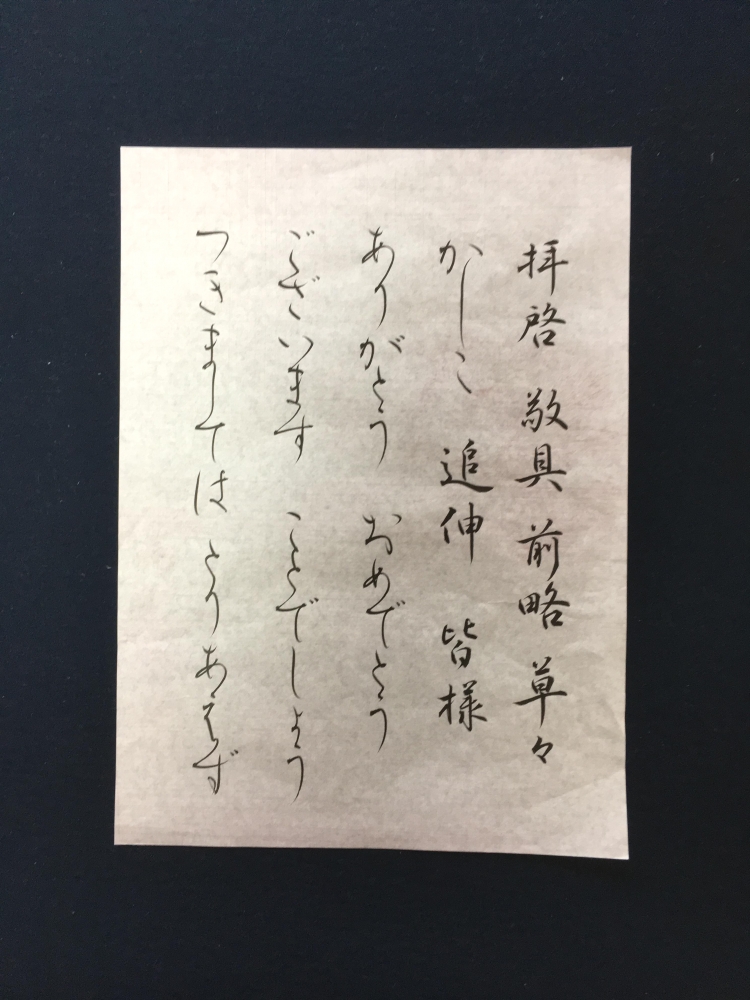 拝啓 敬具 前略 草々
かしこ 追伸 皆様
ありがとう おめでとう
ございます ことでしょう
つきましては とりあえず